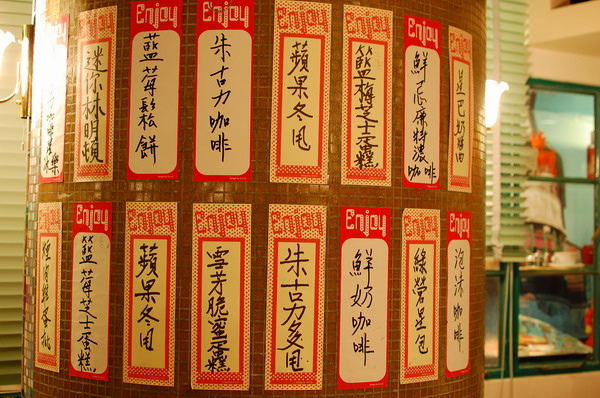 Enjoy
迷你林明頓
Enjoy
藍莓鬆餅
Enjoy
朱古力咖啡
Enjoy
蘋果冬甩
Enjoy
籃梅芝士蛋糕
Enjoy
鮮忌廉特濃
咖啡
Enjoy
Enjoy
Enjoy
籃莓芝士蛋糕
Enjoy
蘋果冬甩
Enjoy
雪芳脆蜜蛋糕
Enjoy
朱古力多甩
Enjoy
鮮奶咖啡
Enjoy
綠營星包
Enjoy
泡沫咖啡